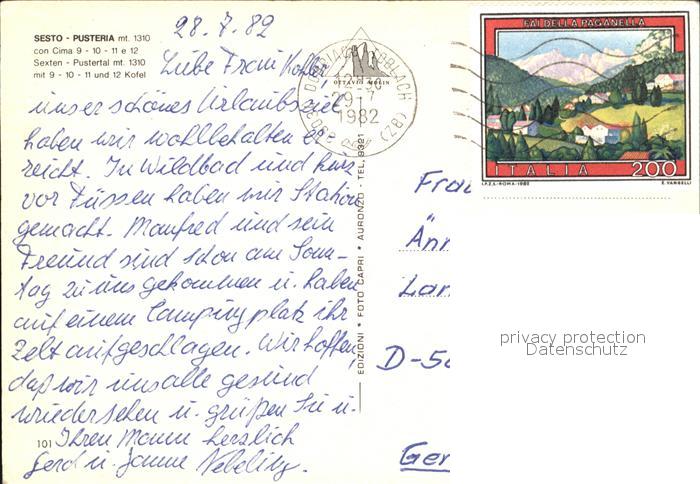 28.7.82
SESTO - PUSTERIA mt. 1310
con Cima 9 - 10 - 11 e 12
Sexten - Pustertal mt. 1310
mit 9 - 10 - 11 und 12 Kofel
Liebe Frau Kohler,
unser schönes Urlaubsziel
haben wir wohlbehalten er
reicht. In Wildbad und kurz
vor Füssen haben wir Station
gemacht. Manfred und sein
Freund sind schon am Sonn-
tag zu uns gekommen u. haben
auf einem Campingplatz ihr
Zelt aufgeschlagen. Wir hoffen,
daß wir uns alle gesund
wiedersehen u. grüßen Sie u.
Ihren Mann herzlich
Gerd u. Nebeling.
101
OTTAVIO
DOBBIACO TOBLACH
12-30
29.7
1982
(BZ)
EDIZIONI * FOTO CAPRI * AURONZO - TEL. 9321
FAI DELLA PAGANELLA
ITALIA 200
I.P.Z.S.-ROMA-1982 E. VANGELLI
Frau
Änn
Lan
D-50
Ger
privacy protection
Datenschutz